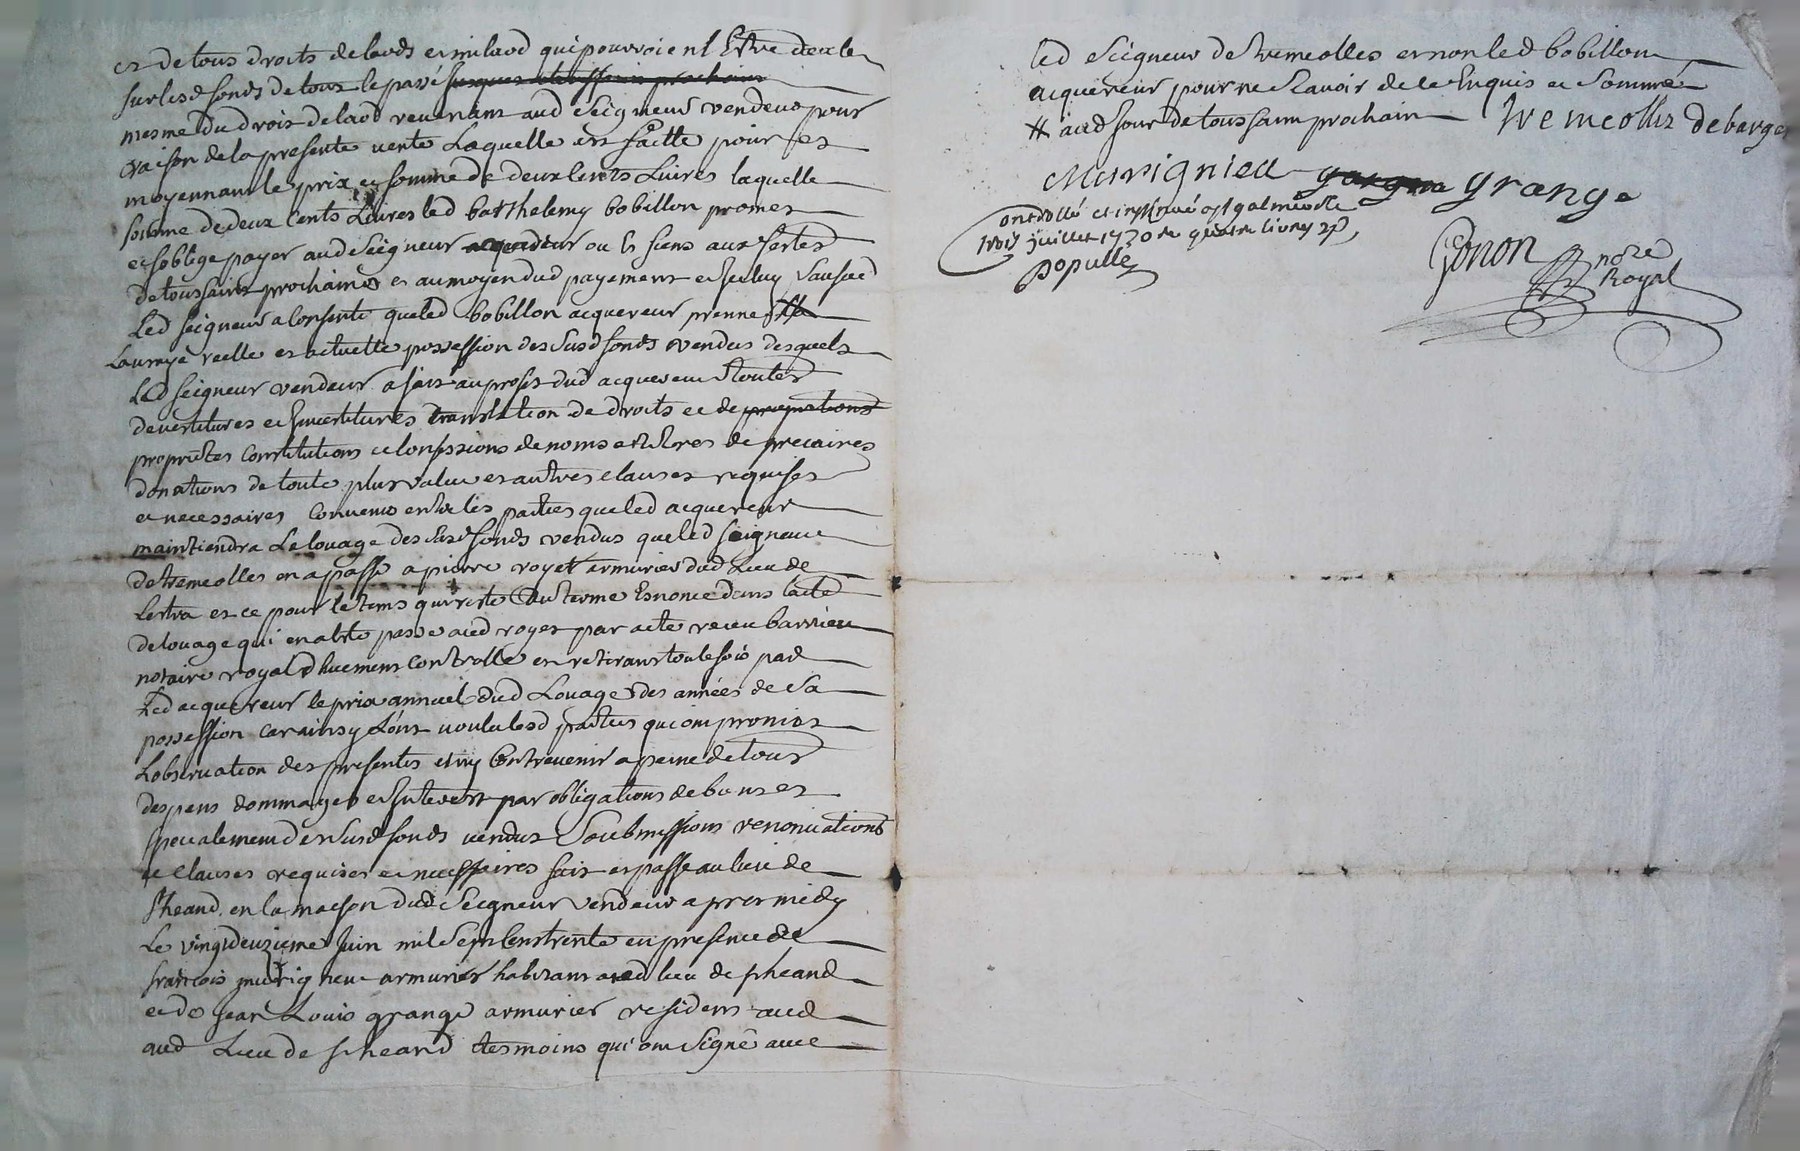 et de tous droits de lavods et milaod qui pouvroient Estre deub
sur lesd fonds de tous le passé jusques
mesme du droit de laod revenant aud Seigneur vendeur pour
raison de la presente vente Laquelle est faitte pour et
moyennant le prix et somme de deux Cents Livres laquelle
somme de deux Cents Livres led barthelemy bobillon promet
et soblige payer aud Seigneur acquereur ou Es siens aux festes
de toussaint prochaines et au moyen dud payement et
Led seigneur a Consenti que led bobillon acquereur prenne
La vraye reelle et actuelle possession des Susd fonds vendus desquels
Led Seigneur vendeur a fait au profit dud acquereur toutes
devestitures et Investitures translation de droits et de
proprietes Constitutions et Confessions de noms et titres de precaires
donations de toute plus value et autres clauses requises
et necessaires Convenu entre les parties que led acquereur
maintiendra Le louage des Susd fonds vendus que led Seigneur
de tremeolles en a passé a pierre royet armurier dud Lieu de
Lestra et ce pour le tems qui reste Au terme Esnoncé dans lacte
de louage qui en a été passé aud royet par acte receu barrieu
notaire royal duement Controllé en retirant toutesfois par
Led acquereur le prix annuel dud Louage des années de Sa
possession Car ainsy L'ont voulu lesd parties qui ont promis
Lobservation des presentes et ny Contrevenir a peine de tous
despens dommages et Interest par obligations de biens et
specialement des Susd fonds vendus Soubmissions renonciations
et Clauses requises et necessaires fait et passé au lieu de
st heand en la maison dud Seigneur vendeur apres midy
Le vingtdeuzieme Juin mil Sept Cens trente en presence de
francois murigneu armurier habitant aud lieu de st heand
et de Jean Louis grange armurier residant aud
aud Lieu de st heand tesmoins qui ont Signé avec
led Seigneur de tremeolles et non led bobillon
acquereur pour ne Scavoir de ce Enquis et Sommé
# aud Jour de toussaint prochain Tremeolles de barges
Murignieu grange
Controllé et insinué a st galmier le
trois juillet 1730 re quatre livres
Populle
Gonon nore
Royal